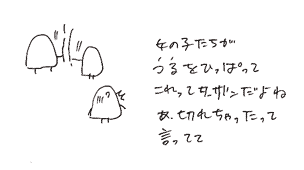 女の子たちが
うるをひっぱって
これってナガリンだよね
あ、切れちゃったって
言ってて